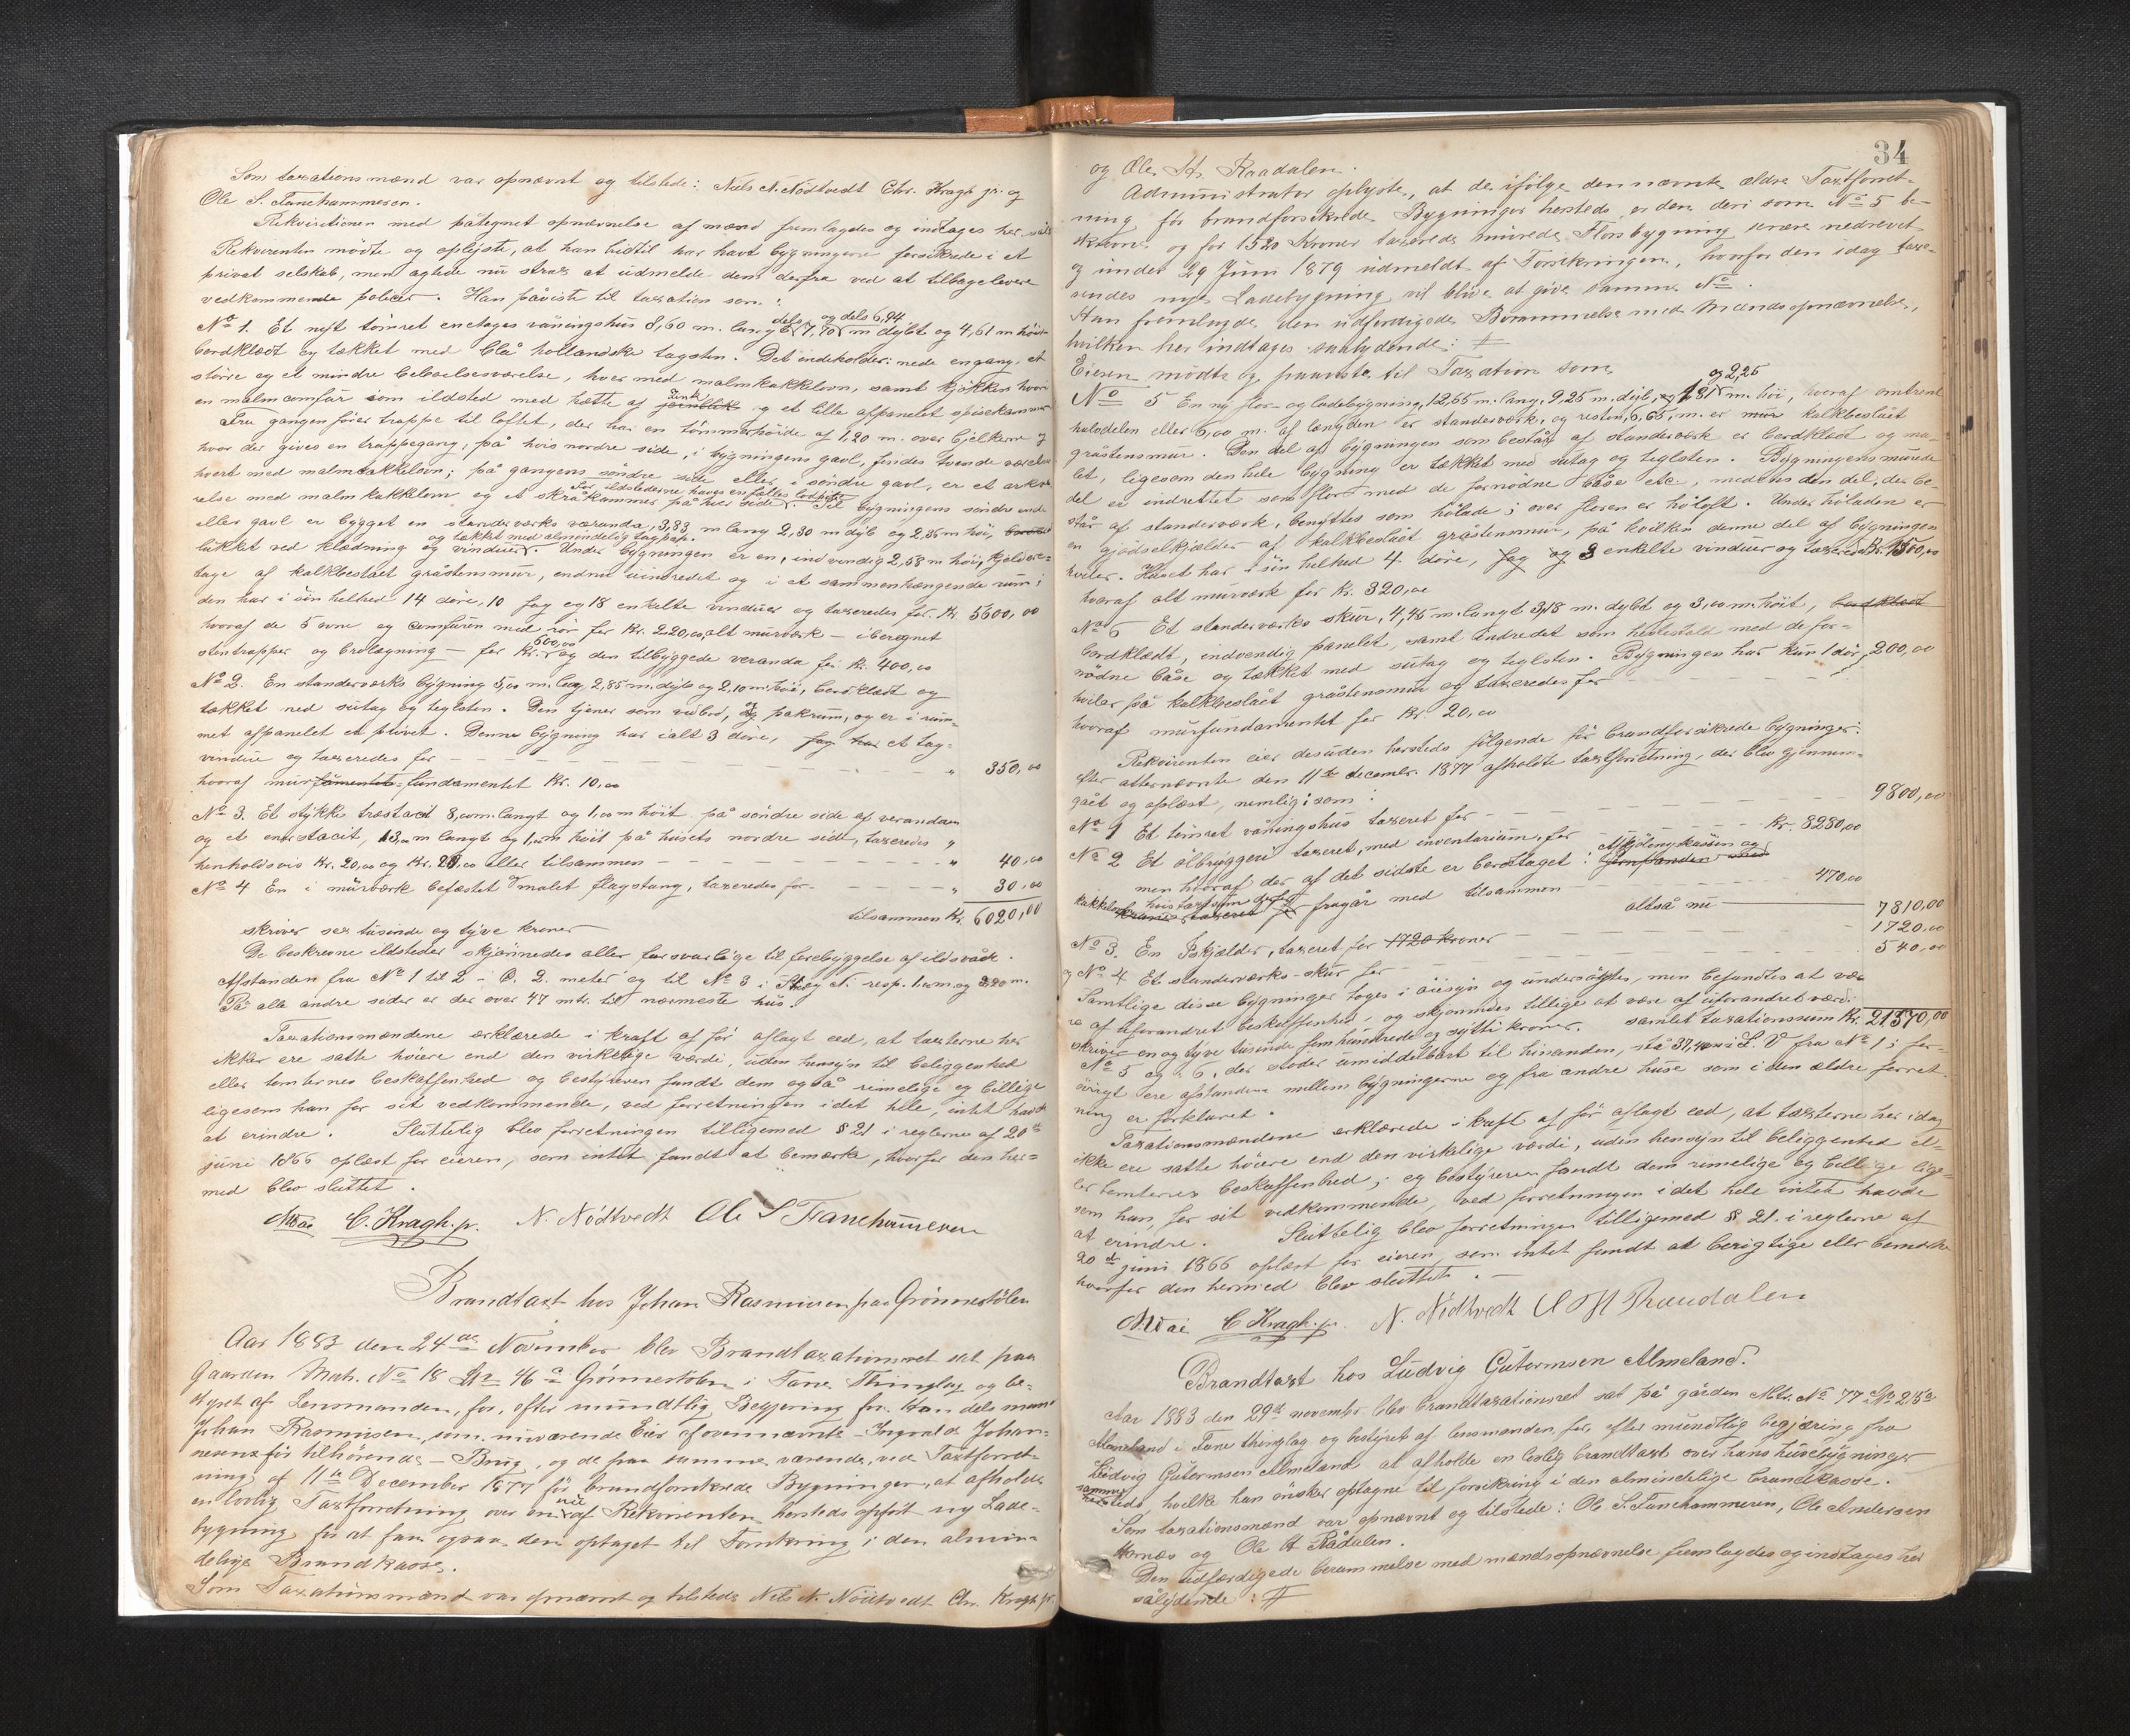 Som taxationsmænd var opnævnt og tilstede: Niels N. Nödtvedt Chr. Kragh jr. og
Ole S. Fanehammeren.
Rekvisitionen med påtegnet opnævnelse af mænd fremlagdes og indtages her
Rekvirenten mödte og oplyste, at han hidtil har havt bygningerne forsikrede i et
privat selskab, men agtede nu strax at udmelde dem derfra ved at tilbagelevere
vedkommende policer. Han påviste til taxation som:
No 1. Et nyt tömret enetages våningshus 8,60 m. langt dels 7,70 og dels 6,94 m dybt og 4,61 m höit
bordklædt og tækket med blå hollandske tagsten. Det indeholder: nede en gang, et
större og et mindre beboelsesværelse, hver med malmkakkelovn, samt kjökken hvori
en malmcomfür som ildsted med hætte af zink og et lille afpanelet spisekammer
Fra gangen förer trappe til loftet, der har en tömmerhöide af 1,20 m. over bjelkerne og
hvor der gives en trappegang, på hvis nordre side, i bygningens gavl, findes tvende værelser
hvert med malmkakkelovn; på gangens söndre side eller i söndre gavl, er et
relse med malmkakkelovn og et skråkammer på hver side. For ildstederne haves en fælles lovpibe. Til bygningens söndre ende
eller gavl er bygget en standerværks væranda, 3,83 m lang 2,30 m dyb og 2,35 m höi,
lukket ved klædning og vinduer og tækket med almindelig tagpap. Under bygningen er en, indvendig 2,58 m höi, kjelder-
tage af kalkbeslået gråstensmur, endnu uindredet og i et sammenhængende rum;
den har i sin helhed 14 döre, 10 fag og 18 enkelte vinduer og taxeredes for Kr. 5600,00
hvoraf de 5 ovne og comfuren med rör for Kr. 220,00, alt murværk – iberegnet
stentrapper og brolægning – for Kr. 600,00 og den tilbyggede veranda for Kr. 400,00
No 2. En standerværks bygning 5,00 m. lang 2,85 m. dyb og 2,10 m. höi, bordklædt og
tækket med sutag og teglsten. Den tjener som vedbod, og pakrum, og er i rum-
met afpanelet et privet. Denne bygning har ialt 3 döre, et tag-
vindue og taxeredes for – – – " 350,00
hvoraf mur fundamentet Kr. 10,00
No 3. Et stykke træstacit 8,00 m. langt og 1,00 m höit på söndre side af verandaen
og et enerstacit, 13,00 m langt og 1,00 m höit på husets nordre side, taxeredes
henholdsvis Kr. 20,00 og Kr. 20,00 eller tilsammen – – – " 40,00
No 4 En i murværk befæstet malet flagstang, taxeredes for – – – " 30,00
tilsammen Kr. 6020,00
skriver sex tusinde og tyve kroner
De beskrevne ildsteder skjönnedes aller forsvarlige til forebyggelse af ildsvåde.
Afstanden fra No 1 til 2 – Ö. 2. meter og til No 3 i S. og N. resp. 1,00 m. og 2,20 m.
På alle andre sider er der over 47 mtr. til nærmeste hus.
Taxationsmændene erklærede i kraft af för aflagt eed, at taxterne her
ikke ere satte höiere end den virkelige værdi, uden hensyn til beliggenhed
eller tomternes beskaffenhed og bestyreren fandt dem også rimelige og billige
ligesom han for sit vedkommende, ved forretningen i det hele, intet havde
at erindre. Sluttelig blev forretningen tilligemed § 21 i reglerne af 20de
juni 1866 oplæst for eieren, som intet fandt at bemærke, hvorfor den her=
med blev sluttet.
C. Kragh. jr. N. Nödtvedt Ole S Fanehammeren
Brandtaxt hos Johan Rasmussen paa Grönnestölen
Aar 1883 den 24de November blev Brandtaxationsret sat paa
Gaarden Matr. No 18 Lno 46a Grönnestölen i Fane Thinglag og be-
styret af Lensmanden, for, efter mundtlig Begjering fra Handelsmand
Johan Rasmussen, som nuværende Eier af ovennævnte – Ingvald Johan-
nesens för tilhörende – Brug, og de paa samme værende, ved Taxtforret-
ning af 11te December 1877 för brandforsikrede Bygninger, at afholde
en lovlig Taxtforretning over en nu af Rekvirenten hersteds opfört ny Lade-
bygning, for at faa ogsaa den optaget til Forsikring i den almin-
delige Brandkasse.
Som Taxationsmænd var opnævnt og tilstede Nils N. Nödtvedt Chr. Kragh jr.
34
og Ole H. Raadalen.
Administrator oplyste, at de ifölge den nævnte ældre Taxtforret-
ning för brandforsikrede Bygninger hersteds, er den deri som No 5 be-
skrevne og for 1520 Kroner taxerede murede Florsbygning senere nedrevet
og under 29 Juni 1879 udmeldt af Forsikringen, hvorfor den idag taxe-
rendes nye Ladebygning vil blive at give samme No.
Han fremlagde den udfærdigede Berammelse med Mandsopnævnelse,
hvilken her indtages saalydende: #
Eieren mödte og paaviste til Taxation som
No 5 En ny flor- og ladebygning, 12,65 m. lang, 9,25 m. dyb, 1,81 og 2,25 m. höi, hvoraf omtrent
halvdelen eller 6,00 m. af længden er standerværk, og resten, 6,65, m. er mur kalkbeslået
gråstensmur. Den del af bygningen som består af standerværk er bordklædt og ma-
let, ligesom den hele bygning er tækket med sutag og teglsten. Bygningens murede
del er indrettet som flor med de fornödne båse etc., medens den del, der be-
står af standerværk, benyttes som hölade; over floren er höloft. Under höladen er
en gjödselkjælder af kalkbeslået gråstensmur, på hvilken denne del af bygningen
hviler. Huset har i sin helhed 4 döre, og 3 enkelte vinduer og taxeredes Kr. 1500,00
hvoraf alt murværk for Kr. 320,00
No 6 Et standerværks skur, 4,45 m. langt 3,18 m. dybt og 3,00 m. höit,
bordklædt, indvendig panelet, samt indredet som hestestald med de for=
nödne båse og tækket med sutag og teglsten. Bygningen har kun 1 dör, 200,00
hviler på kalkbeslået gråstensmur og taxeredes for
hvoraf murfundamentet for Kr. 20,00
Rekvirenten eier desuden hersteds fölgende för brandforsikrede bygninger:
efter attnævnte den 11te december 1877 afholdte taxtforretning, der blev gjennem-
gået og oplæst, nemlig som:
No 1 Et tömret våningshus taxeret for – – – 9800,00
No 2 Et ölbryggeri taxeret, med inventarium, for – – Kr. 8280,00
men hvoraf der af det sidste er borttaget:
fragår med tilsammen – – – 470,00
altså nu – 7810,00
No 3. En Iskjælder, taxeret for – – – 1720,00
og No 4 Et standerværks-skur for – – – 540,00
Samtlige disse bygninger toges i öiesyn og undersögtes, men befandtes at væ-
re af uforandret beskaffenhed, og skjönnedes tillige at være af uforandret værdi
skriver en og tyve tusinde femhundrede og sytti kroner. samlet taxationssum Kr. 21570,00
No 5 og 6, der stöder umiddelbart til hinanden, stå 37,40 m i S. V fra No 1; for-
övrigt ere afstandene mellem bygningerne og fra andre huse som i den ældre forret-
ning er forklaret.
Taxationsmændene erklærede i kraft af för aflagt eed, at taxterne her idag
ikke ere satte höiere end den virkelige værdi, uden hensyn til beliggenhed el-
ler tomternes beskaffenhed; og bestyreren fandt dem rimelige og billige lige-
som han, for sit vedkommende, ved forretningen i det hele intet havde
at erindre. Sluttelig blev forretningen tilligemed § 21. i reglerne af
20de juni 1866 oplæst for eieren, som intet fandt at berigtige eller bemærke
hvorfor den hermed blev sluttet. –
C Kragh. jr. N. Nödtvedt O H Raadalen
Brandtaxt hos Ludvig Gutormsen Almeland.
Aar 1883 den 29de novembr. blev brandtaxationsret sat på gården Mtr. No 77 Lno 215a
Almeland i Fane thinglag og bestyret af lensmanden for, efter mundtlig begjæring fra
Ludvig Gutormsen Almeland at afholde en lovlig brandtaxt over hans husebygninger
sammesteds, hvilke han önsker optagne til forsikring i den almindelige brandkasse.
Som taxationsmænd var opnævnt og tilstede: Ole S. Fanehammeren, Ole Andersen
Hornæs og Ole H Rådalen.
Den udfærdigede berammelse med mændsopnævnelse fremlagdes og indtages her
sålydende: #